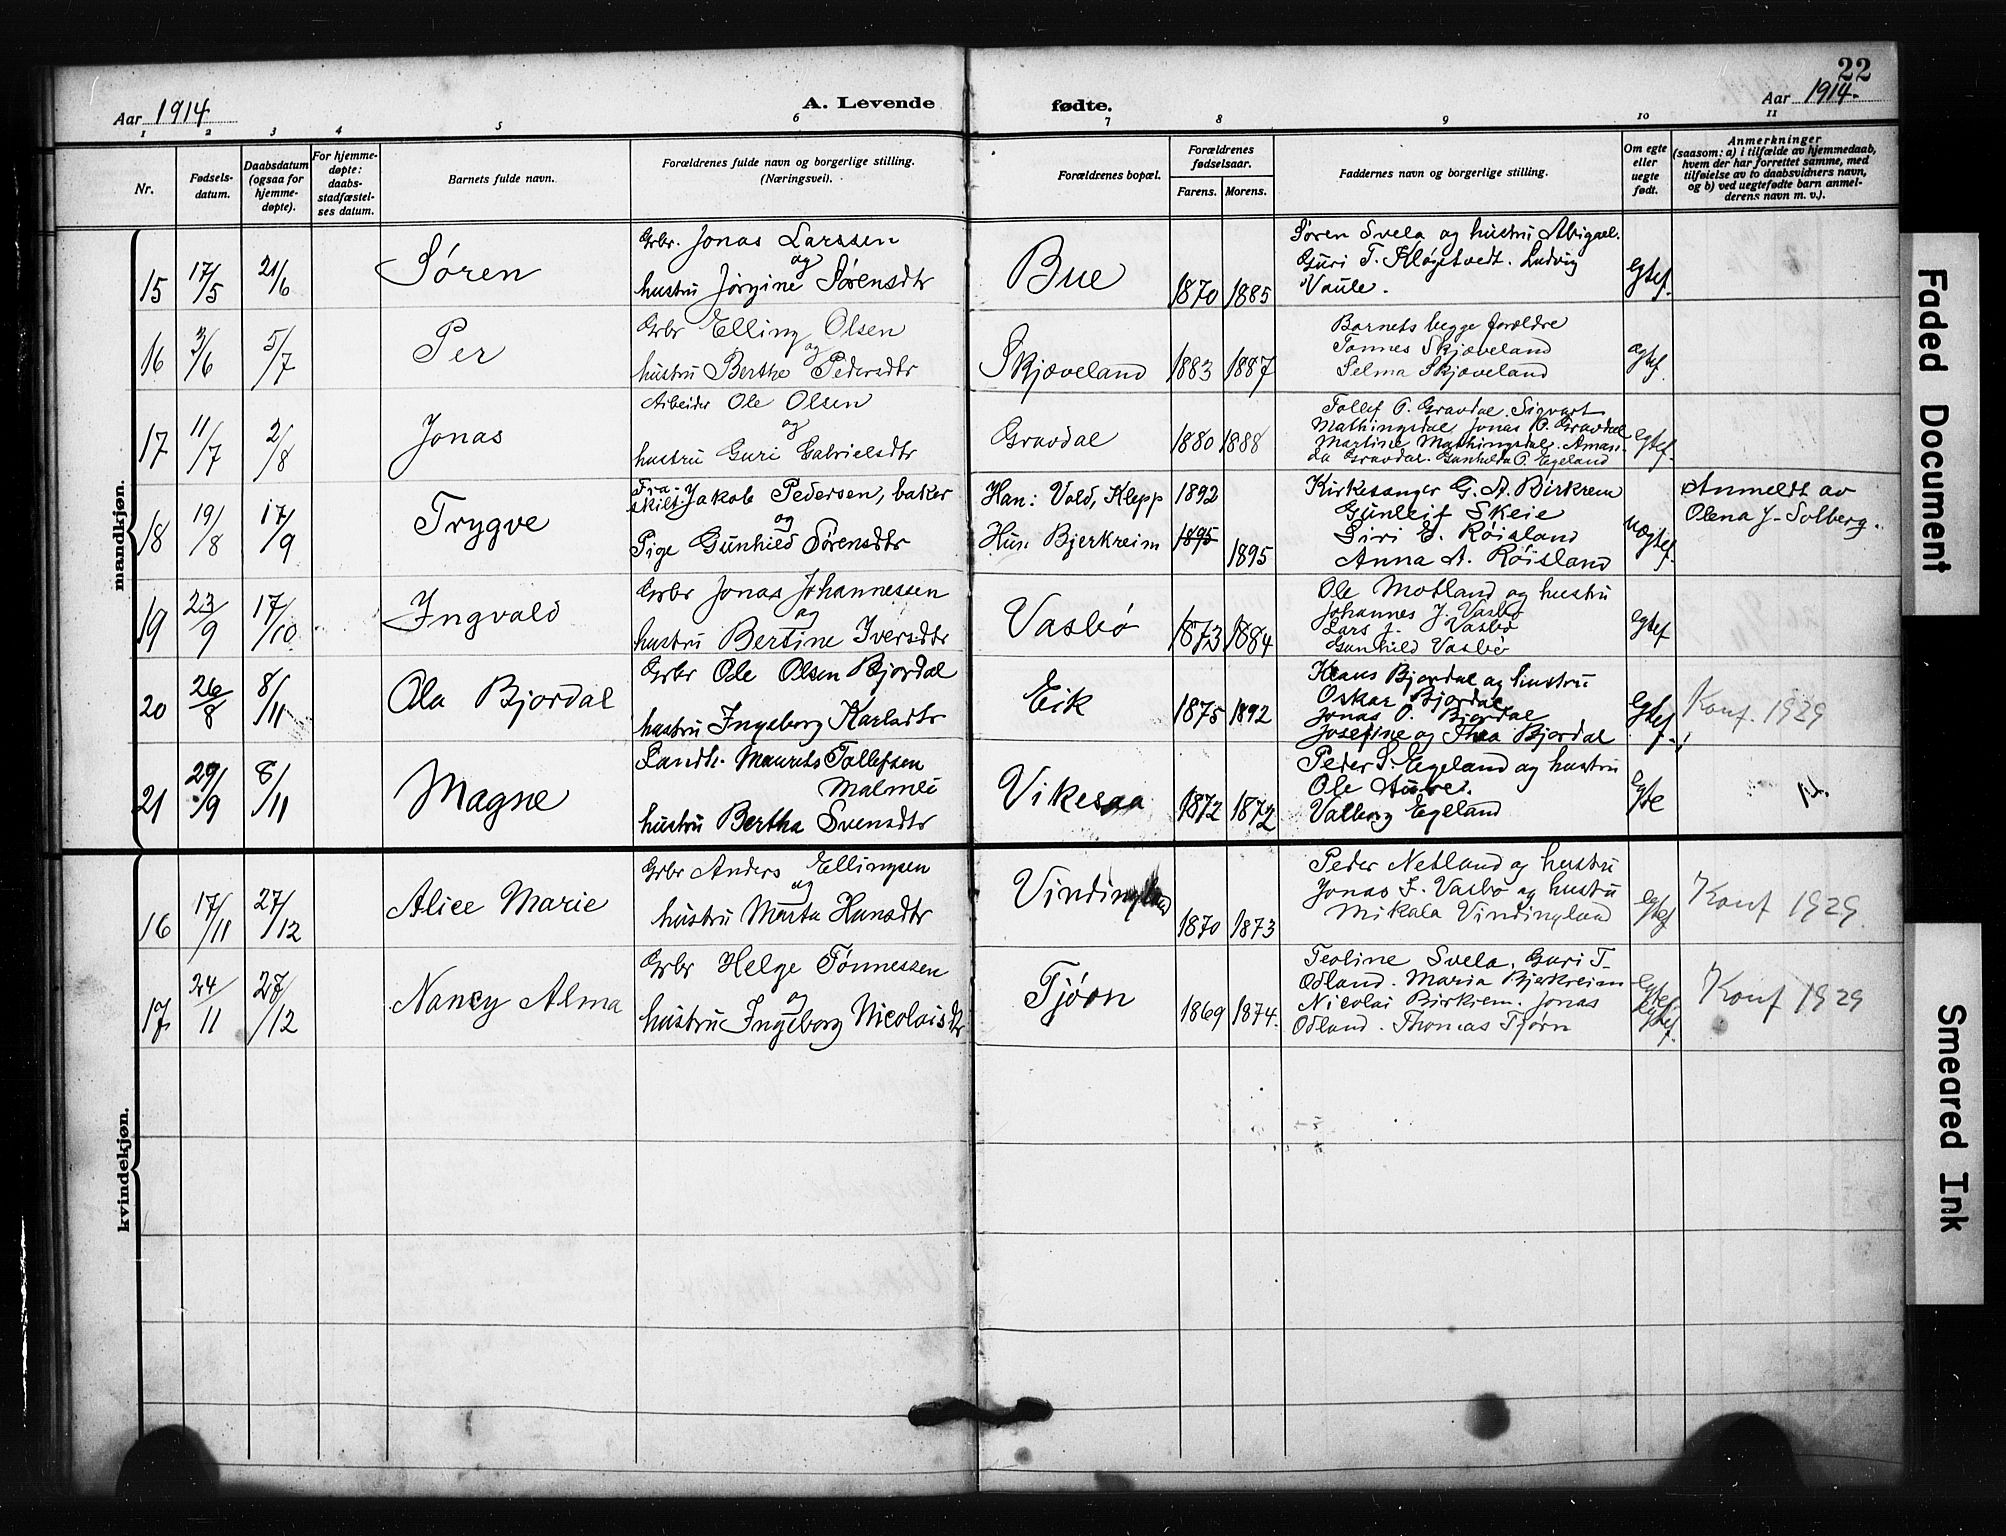 22
Aar 1914
A. Levende
fødte.
Aar 1914.
1 2 3 4 5 6 7 8 9 10 11
Nr.
Fødsels-
datum.
Daabsdatum
(ogsaa for
hjemme-
døpte).
For hjemme-
døpte:
daabs-
stadfæstel-
ses datum.
Barnets fulde navn.
Forældrenes fulde navn og borgerlige stilling.
(Næringsvei).
Forældrenes bopæl.
Forældrenes
fødselsaar.
Farens. Morens.
Faddernes navn og borgerlige stilling.
Om egte
eller
uegte
født.
Anmerkninger
(saasom: a) i tilfælde av hjemmedaab,
hvem der har forrettet samme, med
tilføielse av to daabsvidners navn,
og b) ved uegtefødte barn anmel-
derens navn m. v.).
mandkjøn.
15 17/5 21/6 Søren
Grbr. Jonas Larssen
og
hustru Jørgine Sørensdtr
Bue 1870 1885
Søren Svela og hustru Abigael.
Guri T. Kløgetvedt. Ludvig
Vaule.
Egtef.
16 3/6 5/7 Per
Grbr Elling Olsen
og
hustru Berthe Pedersdtr
Skjæveland 1883 1887
Barnets begge forældre
Tønnes Skjæveland
Selma Skjæveland
egtef.
17 11/7 2/8 Jonas
Arbeider Ole Olsen
og
hustru Guri Gabrielsdtr
Gravdal 1880 1888
Tollef O. Gravdal. Sigvart
Mathingsdal Jonas O. Gravdal
Martine Mathingsdal. Aman-
da Gravdal. Gunhilda O. Egeland
Egtef.
18 19/8 17/9 Trygve
Fra-
skilt Jakob Pedersen, baker
og
Pige Gunhild Sørensdtr
Han: Vold, Klepp 1892
Hun. Bjerkreim 1895 1895
Kirkesanger G. A. Birkrem
Gunleif Skeie
Siri G. Røisland
Anna A. Røisland
Uægtef.
Anmeldt av
Olena J. Solberg.
19 23/9 17/10 Ingvald
Grbr Jonas Johannessen
og
hustru Bertine Iversdtr
Vasbø 1873 1884
Ole Motland og hustru
Johannes J. Vasbø
Lars J. Vasbø
Gunhild Vasbø
Egtef
20 26/8 8/11 Ola Bjordal
Grbr Ole Olsen Bjordal
hustru Ingeborg Karlsdtr
Eik 1875 1892
Klaus Bjordal og hustru
Oskar Bjordal
Jonas O. Bjordal
Josefine og Thea Bjordal
Egtef.
Konf. 1929
21 29/9 8/11 Magne
Landh. Maurits Tollefsen
Malmei
hustru Bertha Svensdtr
Vikesaa 1872 1872
Peder S. Egeland og hustru
Ole
Valborg Egeland
Egte
kvindekjøn.
16 17/11 27/12 Alice Marie
Grbr Anders Ellingsen
og
hustru Marta Hansdtr
Vindingland 1870 1873
Peder Netland og hustru
Jonas J. Vasbø og hustru
Mikala Vindingland
Egtef
Konf 1929
17 24/11 27/12 Nancy Alma
Grbr Helge Tønnessen
og
hustru Ingeborg Nicolaisdtr
Tjørn 1869 1874.
Teoline Svela. Guri T.
Odland. Maria Bjerkreim
Nicolai Birkrem. Jonas
Odland. Thomas Tjørn
Egtef.
Egtef.
Konf 1929
Faded Document
Smeared Ink